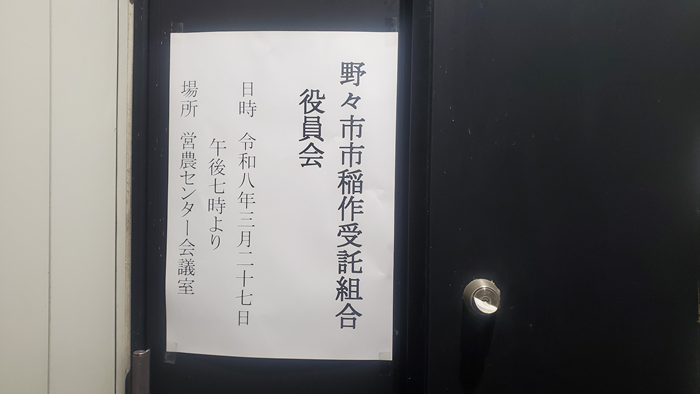 野々市市稲作受託組合
役員会
日時 令和八年三月二十七日
午後七時より
場所 営農センター会議室